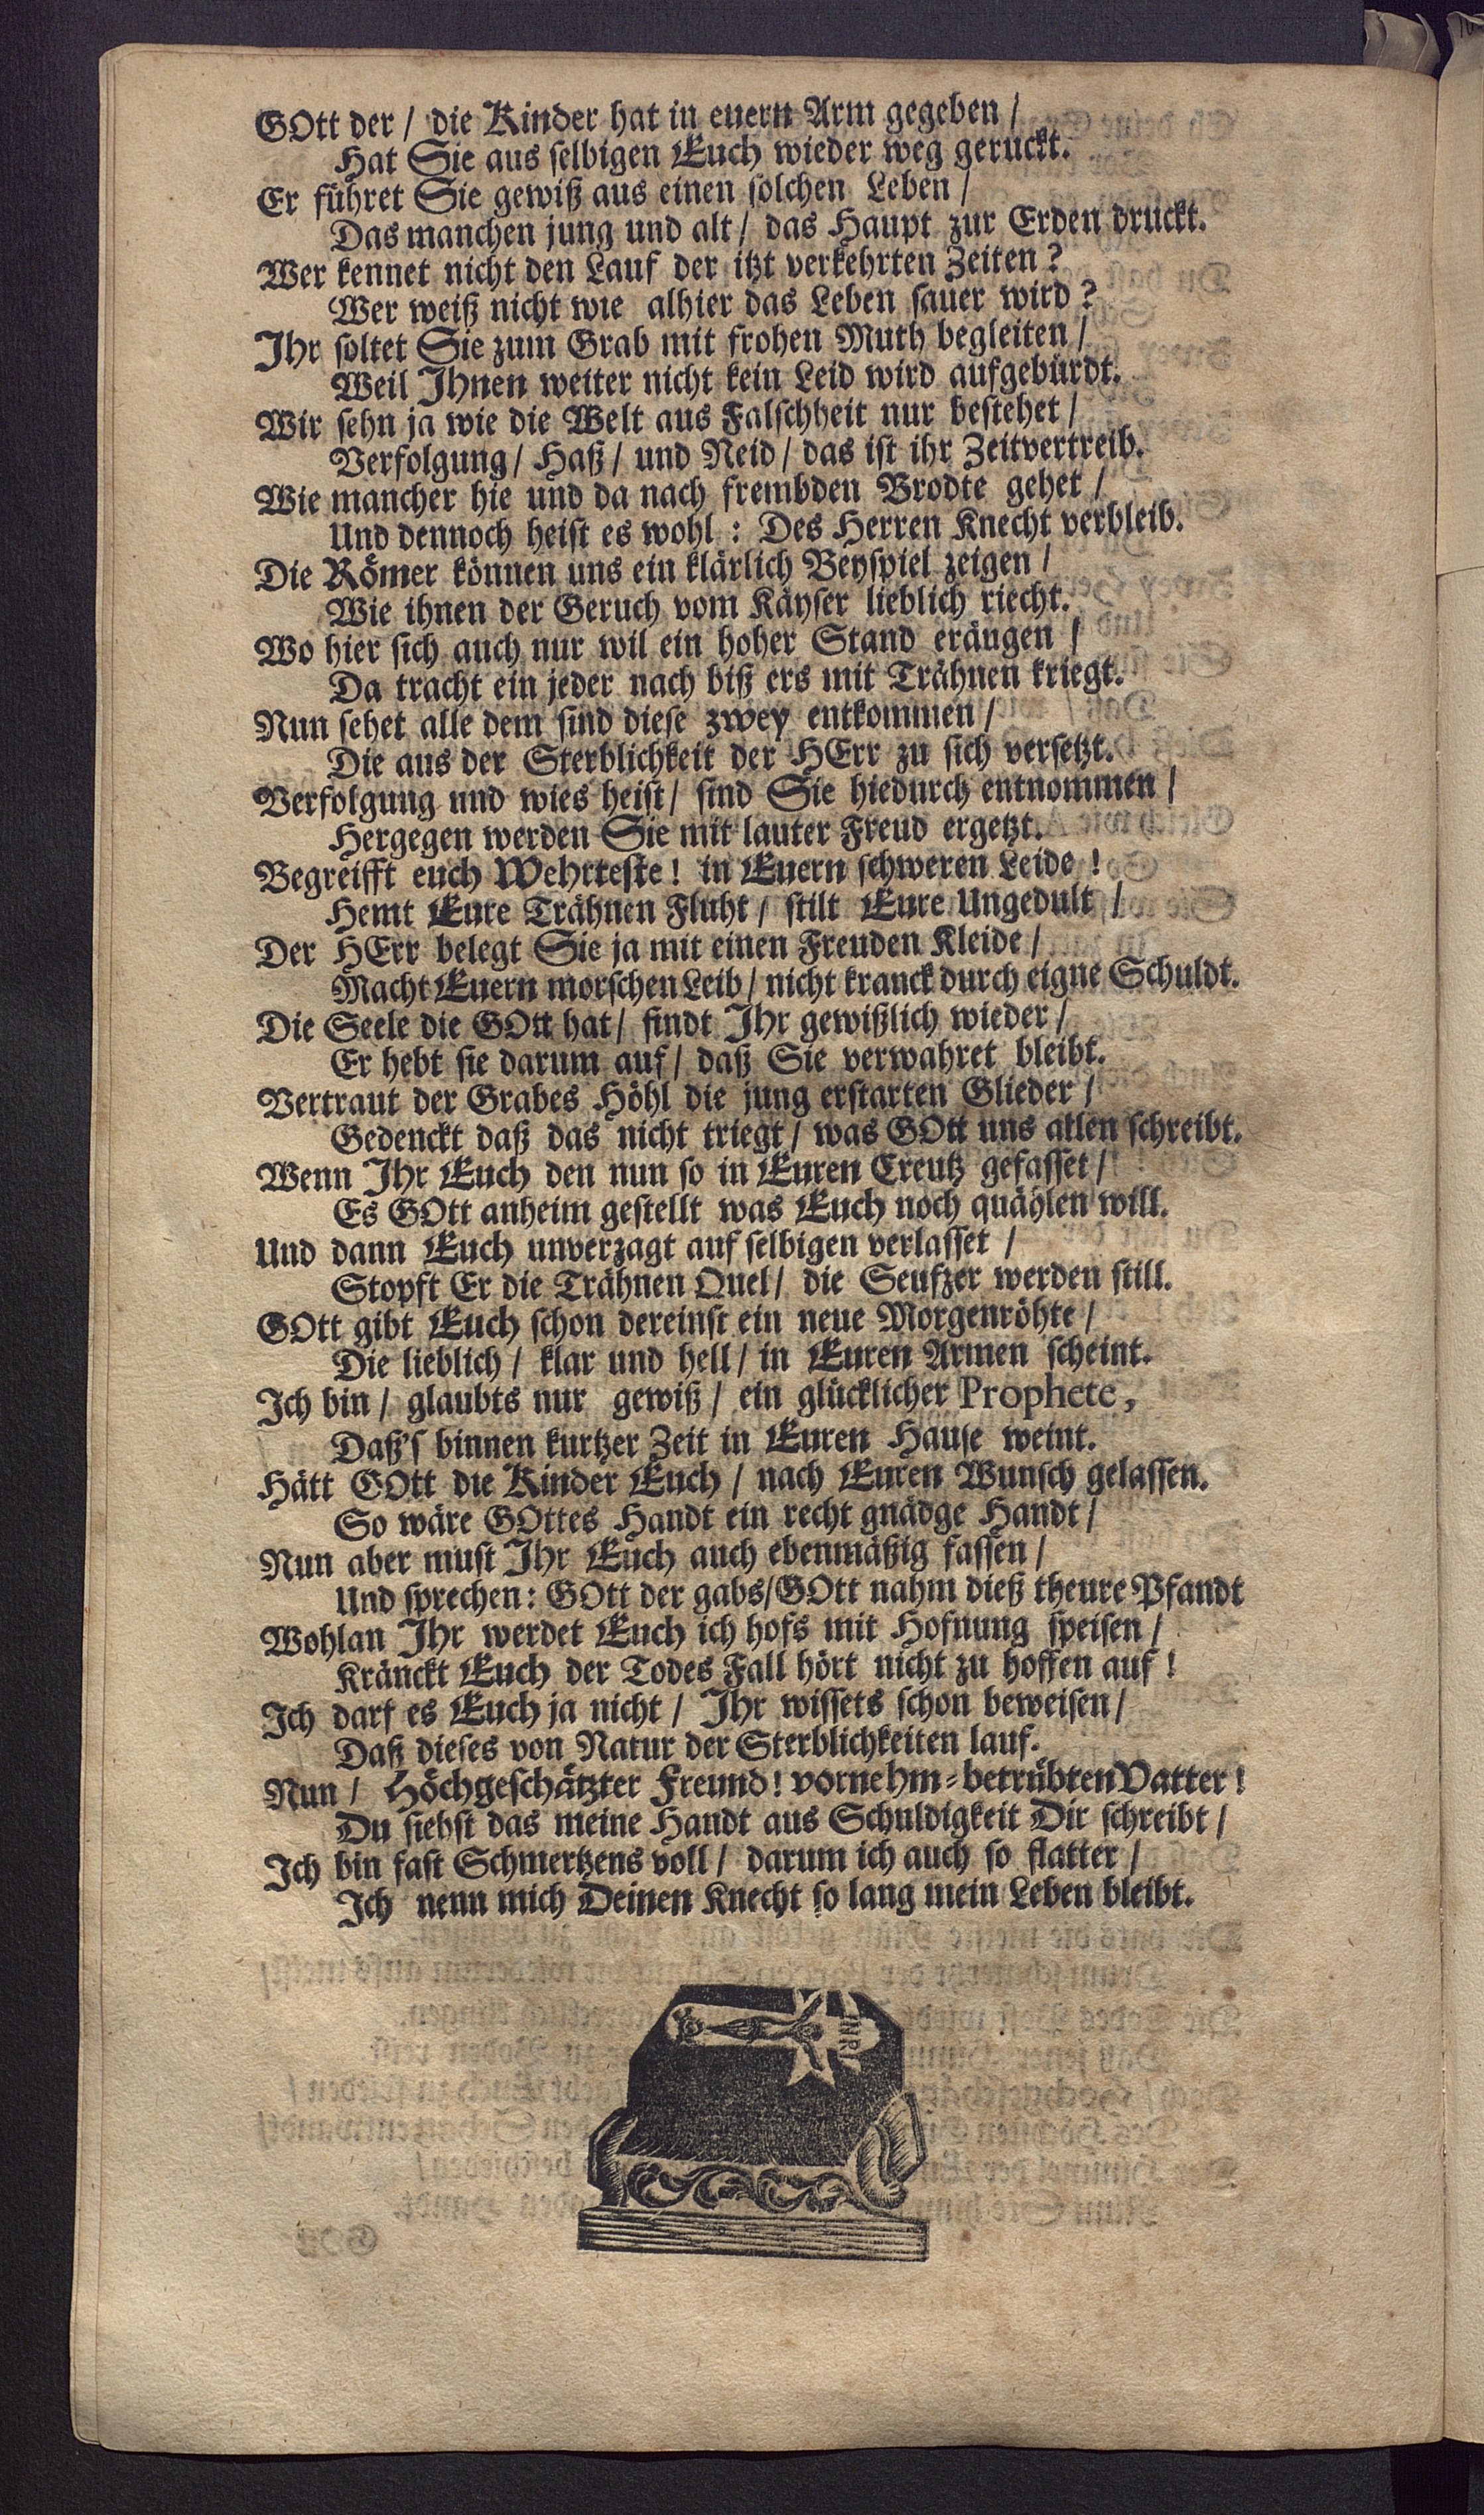 GOtt der / die Kinder hat in euern Arm gegeben /
Hat Sie aus ſelbigen Euch wieder weg geruckt.
Er führet Sie gewiß aus einen ſolchen Leben /
Das manchen jung und alt / das Haupt zur Erden druckt.
Wer kennet nicht den Lauf der itzt verkehrten Zeiten?
Wer weiß nicht wie alhier das Leben ſauer wird?
Ihr ſoltet Sie zum Grab mit frohen Muth begleiten /
Weil Ihnen weiter nicht kein Leid wird aufgebürdt.
Wir ſehn ja wie die Welt aus Falſchheit nur beſtehet /
Verfolgung / Haß / und Neid / das iſt ihr Zeitvertreib.
Wie mancher hie und da nach frembden Brodte gehet /
Und dennoch heiſt es wohl : Des Herren Knecht verbleib.
Die Römer können uns ein klärlich Beyſpiel zeigen /
Wie ihnen der Geruch vom Käyſer lieblich riecht.
Wo hier ſich auch nur wil ein hoher Stand erängen /
Da tracht ein jeder nach biß ers mit Trähnen kriegt.
Nun ſehet alle dem ſind dieſe zwey entkommen /
Die aus der Sterblichkeit der HErr zu ſich verſetzt.
Verfolgung und wies heiſt / ſind Sie hiedurch entnommen /
Hergegen werden Sie mit lauter Freud ergetzt.
Begreifft euch Wehrteſte! in Euern ſchweren Leide !
Hemt Eure Trähnen Fluht / ſtilt Eure Ungedult /
Der HErr belegt Sie ja mit einen Freuden Kleide /
Macht Euern morſchen Leib / nicht kranck durch eigne Schuldt.
Die Seele die GOtt hat / findt Ihr gewißlich wieder /
Er hebt ſie darum auf / daß Sie verwahret bleibt.
Vertraut der Grabes Höhl die jung erſtarten Glieder /
Gedenckt daß das nicht triegt / was GOtt uns allen ſchreibt.
Wenn Ihr Euch den nun ſo in Euren Creutz gefaſſet /
Es GOtt anheim geſtellt was Euch noch quählen will.
Und dann Euch unverzagt auf ſelbigen verlaſſet /
Stopft Er die Trähnen Quel / die Seufzer werden ſtill.
GOtt gibt Euch ſchon dereinſt ein neue Morgenröhte /
Die lieblich / klar und hell / in Euren Armen ſcheint.
Ich bin / glaubts nur gewiß / ein glücklicher Prophete,
Daß'ſ binnen kurtzer Zeit in Euren Hauſe weint.
Hätt GOtt die Kinder Euch / nach Euren Wunſch gelaſſen.
So wäre GOttes Handt ein recht gnädge Handt /
Nun aber muſt Ihr Euch auch ebenmäßig faſſen /
Und ſprechen: GOtt der gabs/GOtt nahm dieß theure Pfandt
Wohlan Ihr werdet Euch ich hofs mit Hofnung ſpeiſen /
Kränckt Euch der Todes Fall hört nicht zu hoffen auf !
Ich darf es Euch ja nicht / Ihr wiſſets ſchon beweiſen /
Daß dieſes von Natur der Sterblichkeiten lauf.
Nun / Höchgeſchätzter Freund! vornehm-betrübten Vatter!
Du ſiehſt das meine Handt aus Schuldigkeit Dir ſchreibt /
Ich bin faſt Schmertzens voll / darum ich auch ſo flatter /
Ich nenn mich Deinen Knecht ſo lang mein Leben bleibt.
INRI